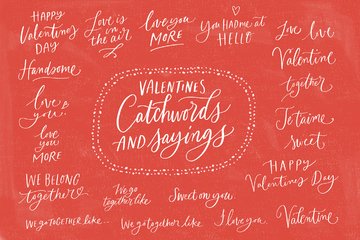 HAPPY
Valentine's
DAY
Love is
in the
air
love you
MORE
You HAD me at
HELLO
Love love
Handsome
Valentine
together
love
you.
VALENTINES
Catchwords
AND sayings
Je t'aime
sweet
love
you
MORE
HAPPY
Valentines Day
WE BELONG
together
We go
together like
Sweet on you
We go together like...
We go together like
I love you
Valentine